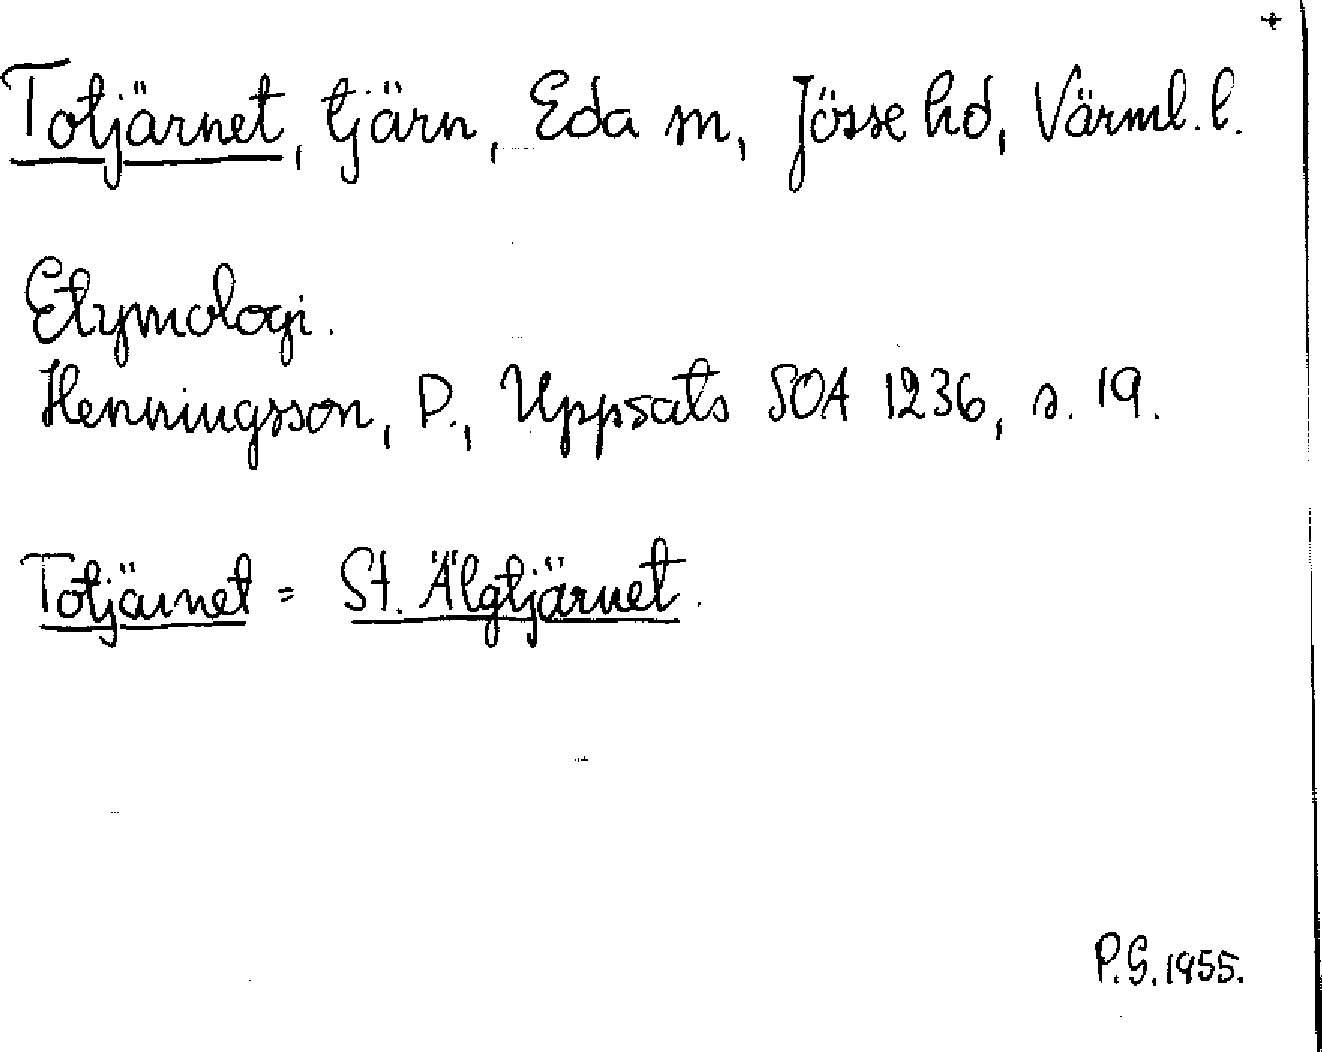 Totjärnet, tjärn, Eda sn, Jösse hd, Värml. l.
Etymologi.
Henningsson, P., Uppsats SOA 1236, s. 19.
Totjärnet = St. Älgtjärnet.
P.G. 1955.